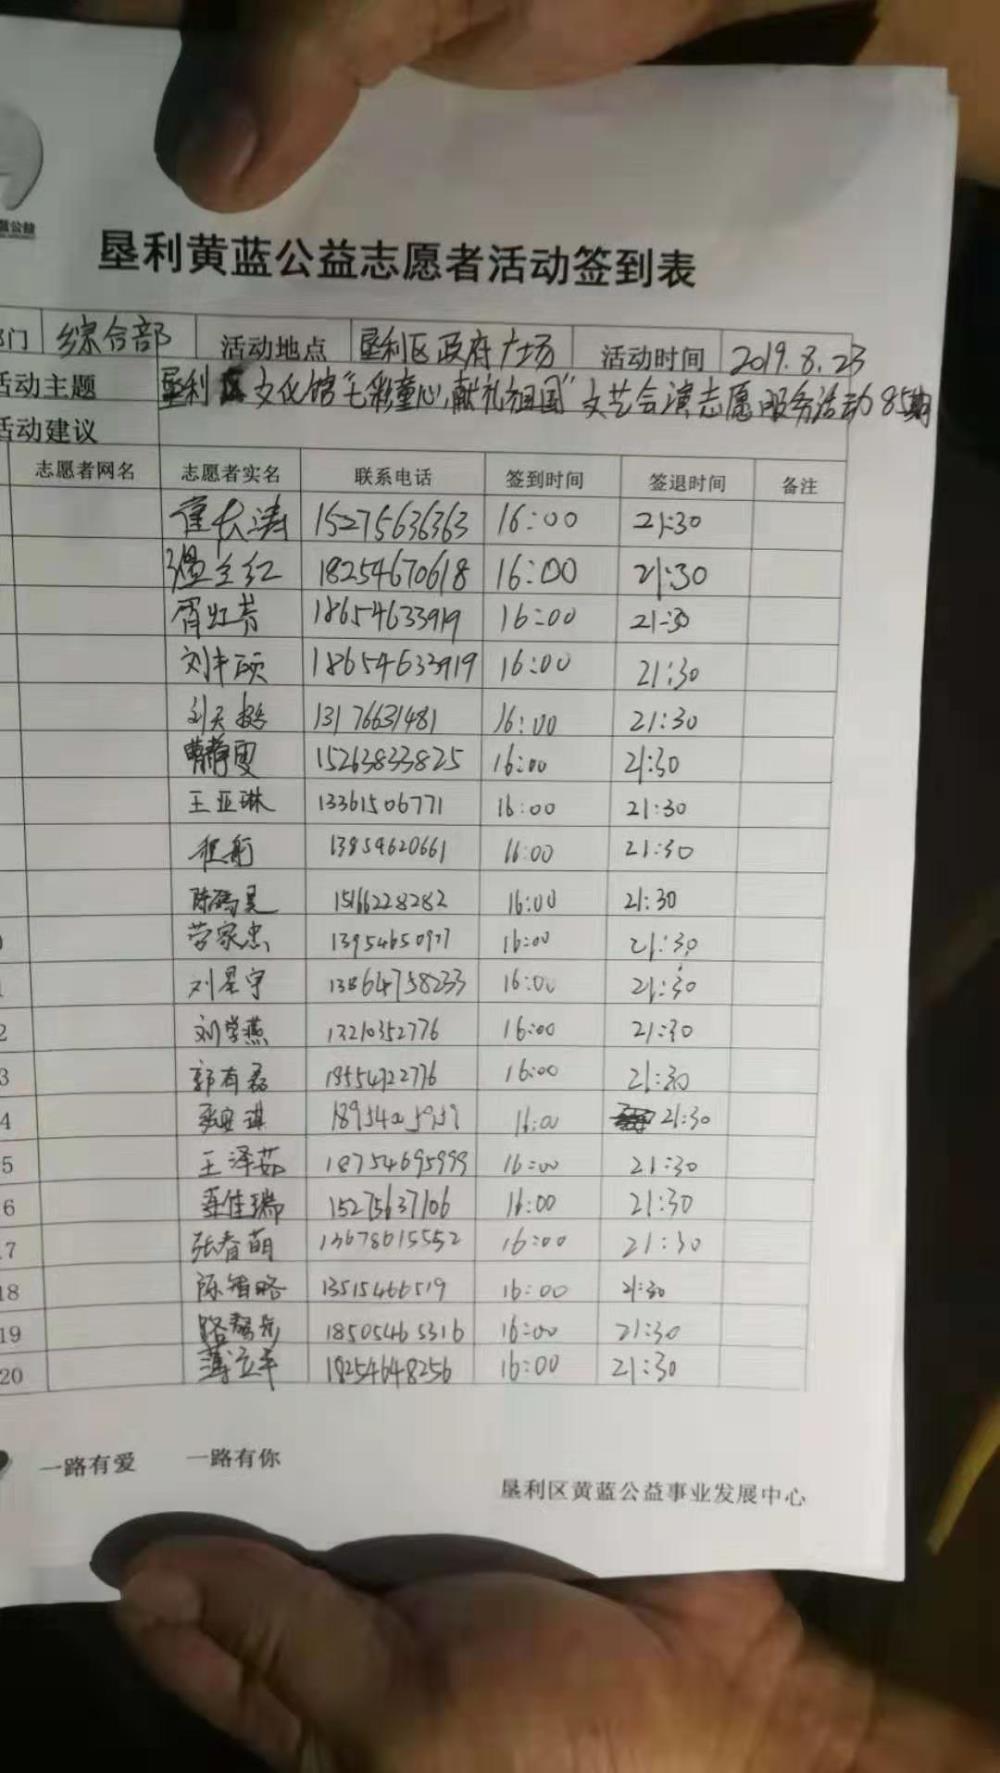 蓝公益
垦利黄蓝公益志愿者活动签到表
部门 综合部 活动地点 垦利区政府广场 活动时间 2019.8.23
活动主题 垦利区文化馆"七彩童心,献礼祖国"文艺会演志愿服务活动85期
活动建议
志愿者网名 志愿者实名 联系电话 签到时间 签退时间 备注
15275636363 16:00 21:30
18254670618 16:00 21:30
18654633919 16:00 21:30
刘丰硕 18654633919 16:00 21:30
13176631481 16:00 21:30
曹静雯 15263833825 16:00 21:30
王亚琳 13361506771 16:00 21:30
程前 13854620661 16:00 21:30
15166228282 16:00 21:30
劳家忠 13954650977 16:00 21:30
刘星宇 13864758233 16:00 21:30
2 刘学燕 13210352776 16:00 21:30
3 郭有磊 18554722776 16:00 21:30
4 16:00 21:30
5 王泽茹 18754695999 16:00 21:30
6 聂佳瑞 15275637106 16:00 21:30
7 张春萌 13678615552 16:00 21:30
18 陈智略 13515466519 16:00 21:30
19 18505465316 16:00 21:30
20 18254648256 16:00 21:30
一路有爱 一路有你
垦利区黄蓝公益事业发展中心